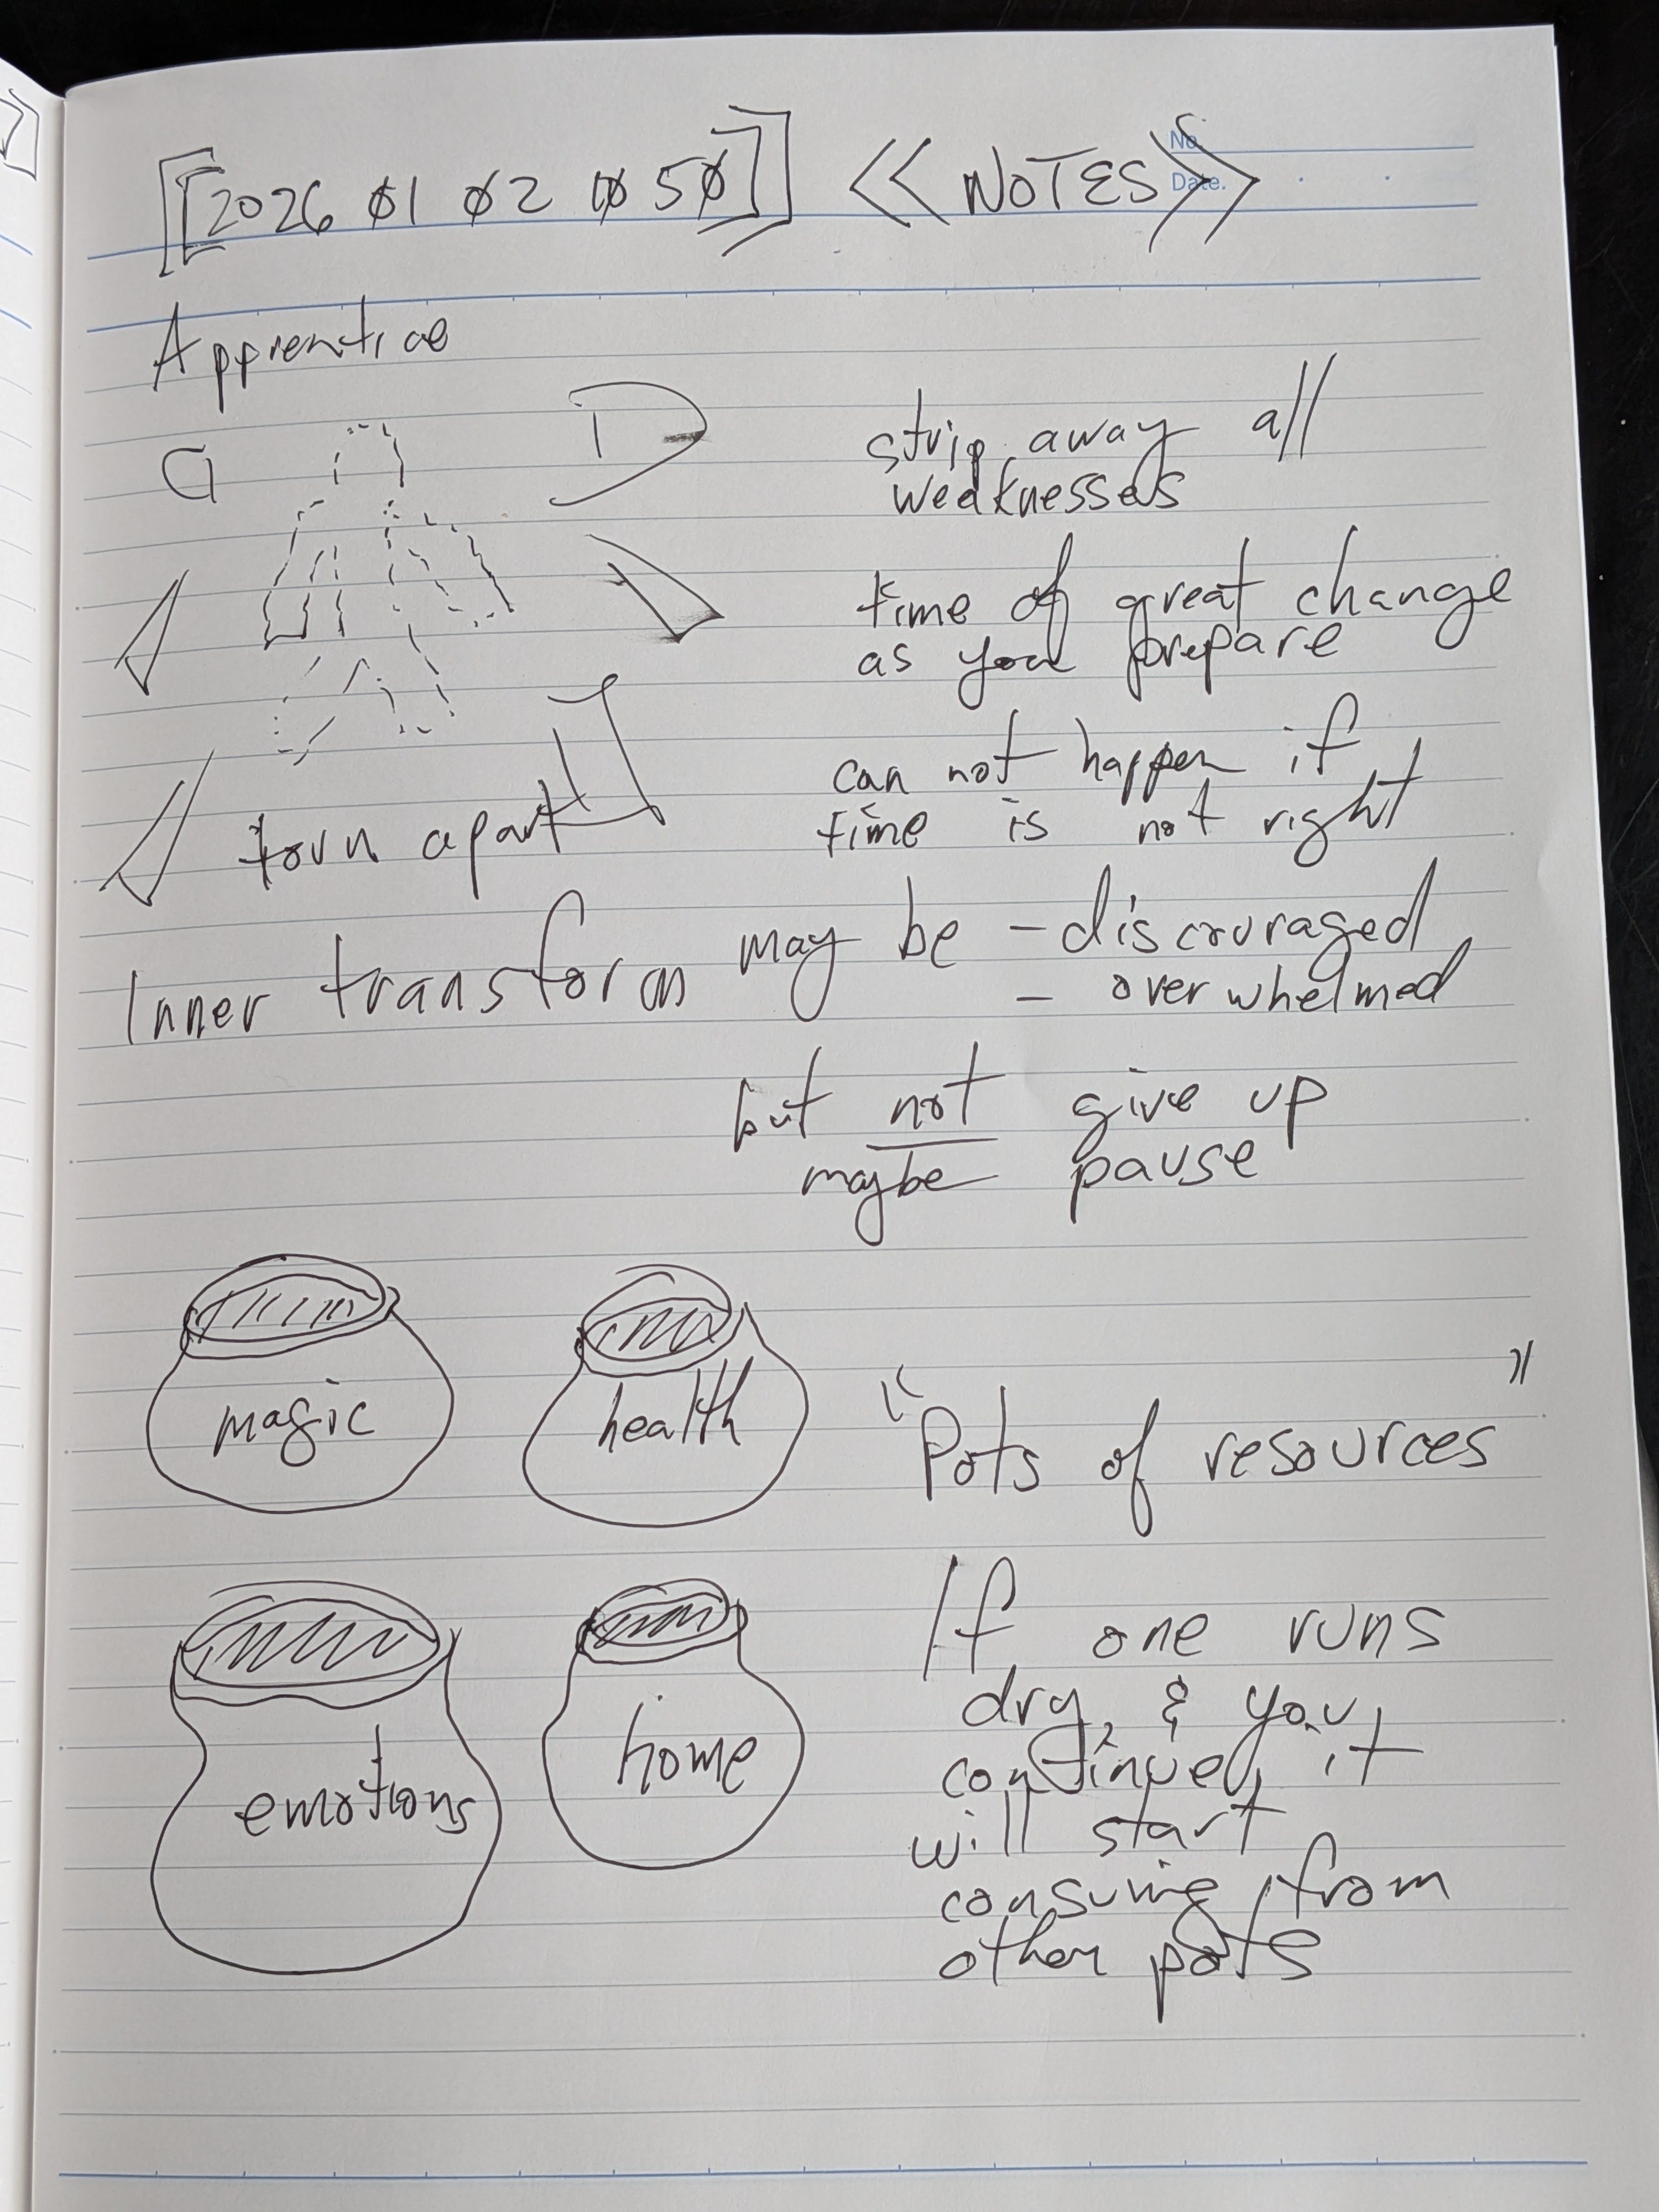 [[2026 01 02 10 50]] << NOTES >>
No.
Date.
Apprentice
strip away all
weaknesses
time of great change
as you prepare
can not happen if
time is not right
torn apart
Inner transform may be - discouraged
- overwhelmed
but not give up
maybe pause
magic
health
"Pots of resources"
emotions
home
If one runs
dry, & you
continue, it
will start
consuing from
other pots